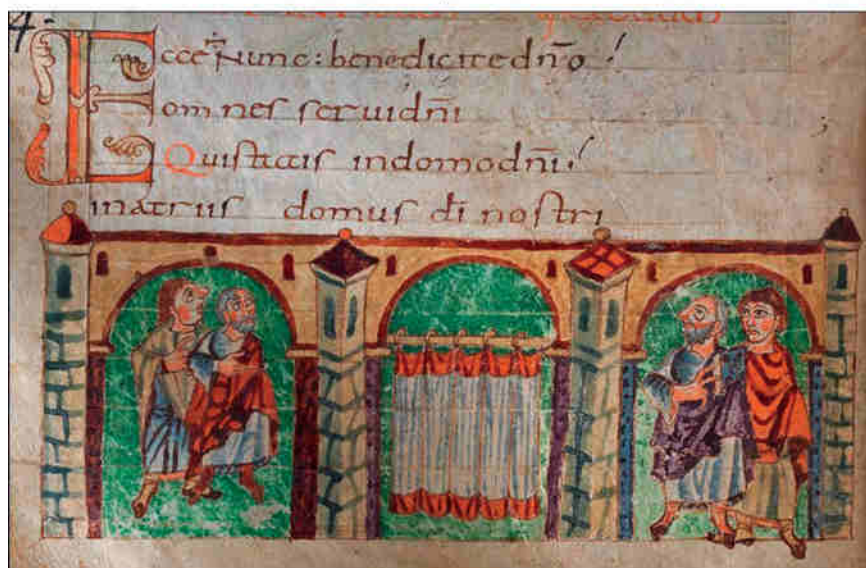 Ecce Nunc : benedicite dn̄o
omnes serui dn̄i
Qui statis in domo dn̄i
in atriis domus dī nostri